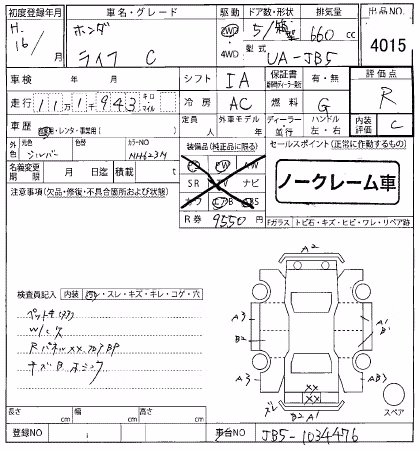 初度登録年月 車名・グレード 駆動 ドア数・形状 排気量 出品NO.
H. 16/ 月 ホンダ 2WD 5/ 箱型 660 cc 4015
ライフ C 4WD 型式 UA-JB5
車検 年 月 シフト IA 保証書 有・無 評価点
走行 111千943 キロ マイル 冷房 AC 燃料 G R
定員 人 外車モデル 年 ディーラー 並行 ハンドル 左・右 内装評価 C
車歴 自・レンタ・事業用( )
外色 元色 シルバー カラーNO NH623M
装備品(純正品に限る) セールスポイント(正常に作動するもの)
PS PW AW
名義変更期限 月 日迄 積載 t
SR TV ナビ
ノークレーム車
注意事項(欠品・修復・不具合箇所および状態)
カワ エアB ABS
R券 9550円
Fガラス トビ石・キズ・ヒビ・ワレ・リペア跡
A2
検査員記入 内装 汚レ・スレ・キズ・キレ・コゲ・穴
A3 A1
B2 B1
Rパネルxx
A3 AB3
xx
xx
ズレ B2 A1
スペア
長さ cm 幅 cm 高さ cm
登録NO 車台NO JB5-1034476